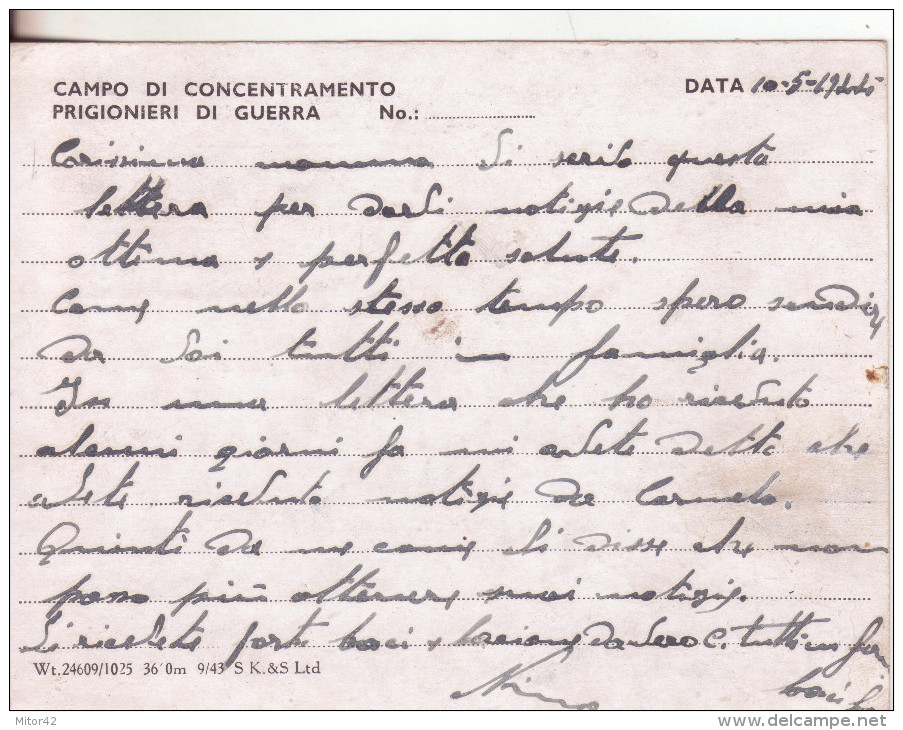 CAMPO DI CONCENTRAMENTO
PRIGIONIERI DI GUERRA No.:
DATA 10-5-1944
Carissima mamma vi scrivo questa
lettera per darvi notizie della mia
ottima e perfetta salute.
Come nello stesso tempo spero
da voi tutti in famiglia.
In una lettera che ho ricevuto
alcuni giorni fa mi avete detto che
avete ricevuto notizie da Carmelo.
Quindi da me come vi disse che non
posso più ottenere suoi notizie.
Vi ricevete forte baci e tutti in
Wt.24609/1025 36'0m 9/43 S K.&S Ltd
Nino baci
Mitor42
delcampe.net